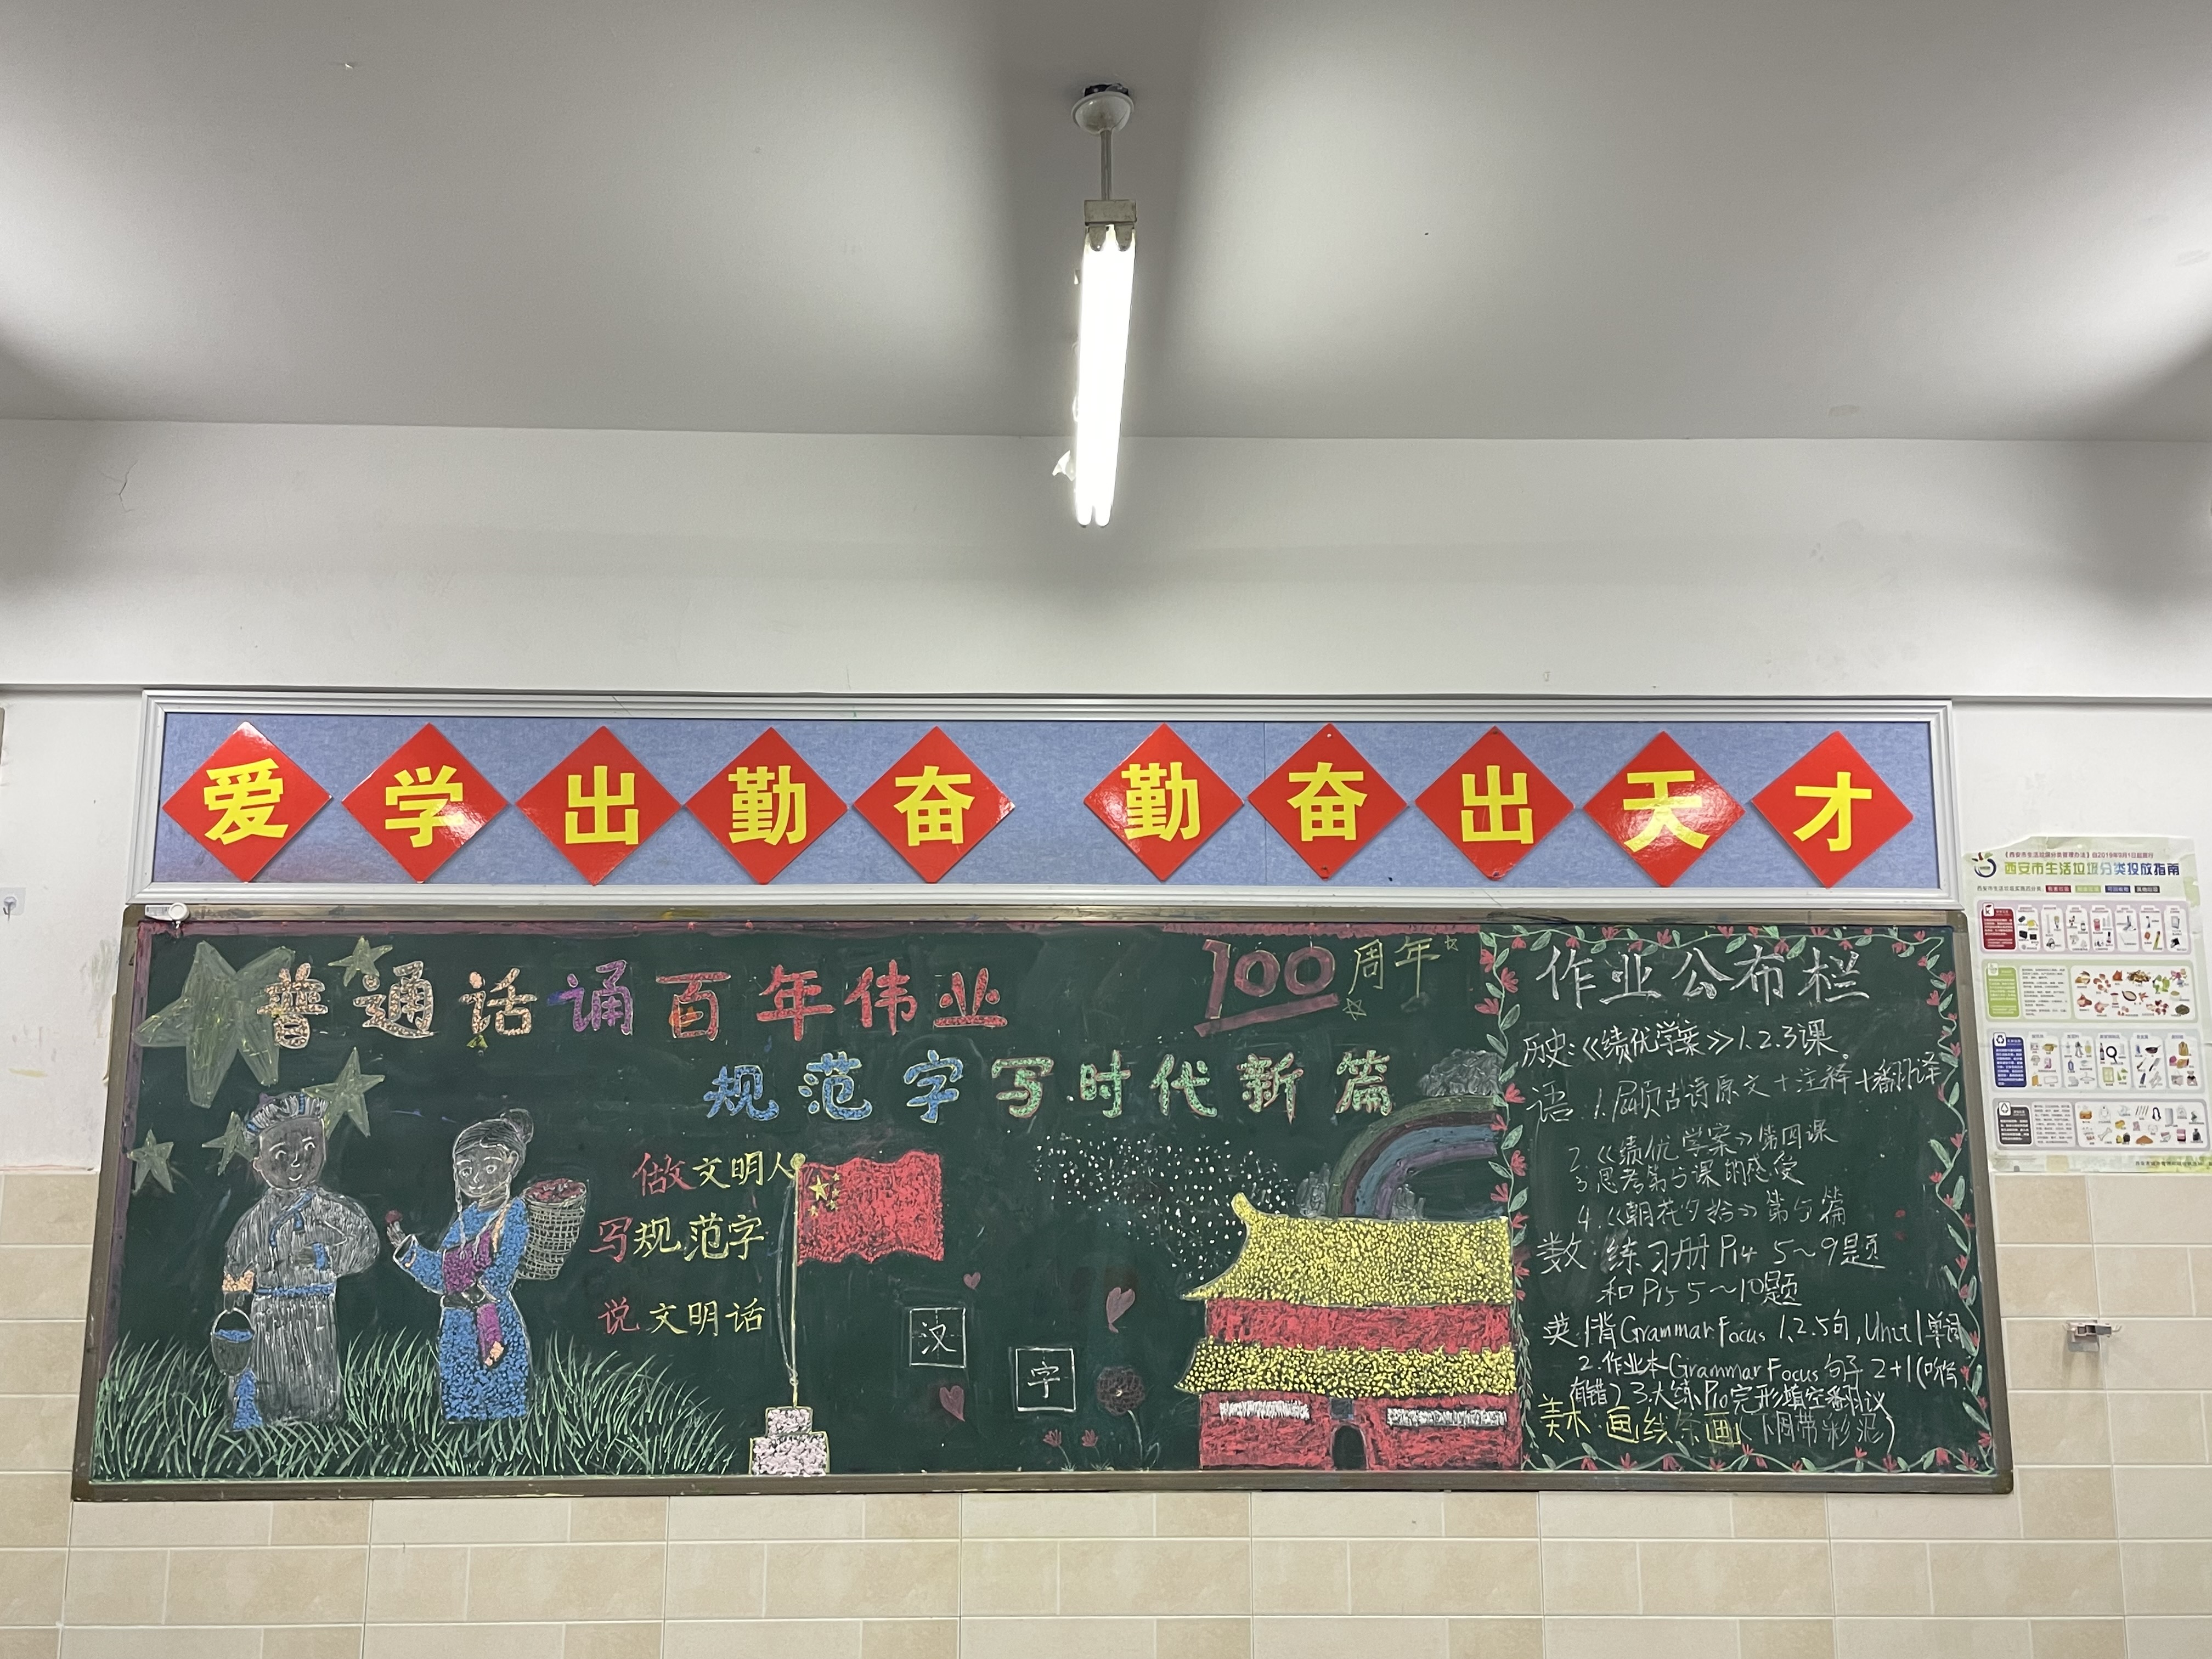 爱学出勤奋 勤奋出天才
普通话诵百年伟业
规范字写时代新篇
100周年
做文明人
写规范字
说文明话
汉
字
作业公布栏
历史:《绩优学案》1.2.3课
语:1.
古诗原文+注释+翻译
2.《绩优学案》第四课
3.思考第5课的感受
4.《朝花夕拾》第5篇
数:练习册P14 5~9题
和P15 5~10题
英:1背Grammar Focus 1,2.5句,Unit 1单词
2.作业本Grammar Focus句子2+1(
有错)3.大练P10完形填空翻议
美术:画线条画(下周带彩泥)
《西安市生活垃圾分类管理办法》自2019年9月1日起施行
西安市生活垃圾分类投放指南